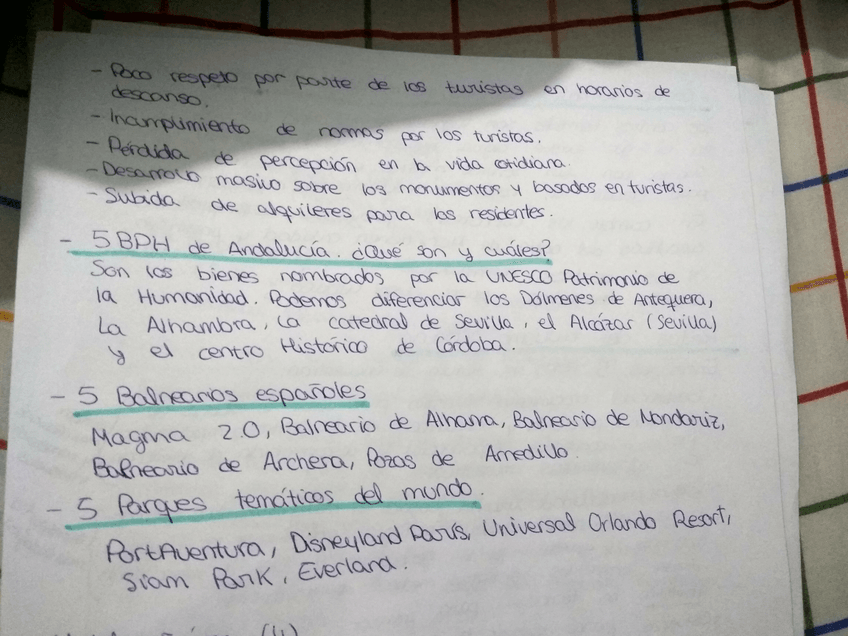 - Poco respeto por parte de los turistas en horarios de
descanso.
- Incumplimiento de normas por los turistas.
- Pérdida de percepción en la vida cotidiana.
- Desarrollo masivo sobre los monumentos y basados en turistas.
- Subida de alquileres para los residentes.
- 5 BPH de Andalucía. ¿Qué son y cuáles?
Son los bienes nombrados por la UNESCO Patrimonio de
la Humanidad. Podemos diferenciar los Dólmenes de Antequera,
La Alhambra, la catedral de Sevilla, el Alcázar (Sevilla)
y el centro Histórico de Córdoba.
- 5 Balnearios españoles
Magma 2.0, Balneario de Alhama, Balneario de Mondariz,
Balneario de Archena, Pozas de Arnedillo.
- 5 Parques temáticos del mundo.
PortAventura, Disneyland París, Universal Orlando Resort,
Siam Park, Everland.
(4)